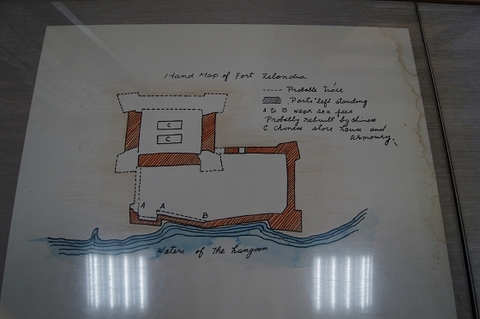 Hand Map of Fort Zelandia
Probable Trace
Parts left standing
A to B wear sea face
Probably rebuilt by chinese
C chinese store house and
Armoury.
C
C
A
A
B
Waters of The Langoon